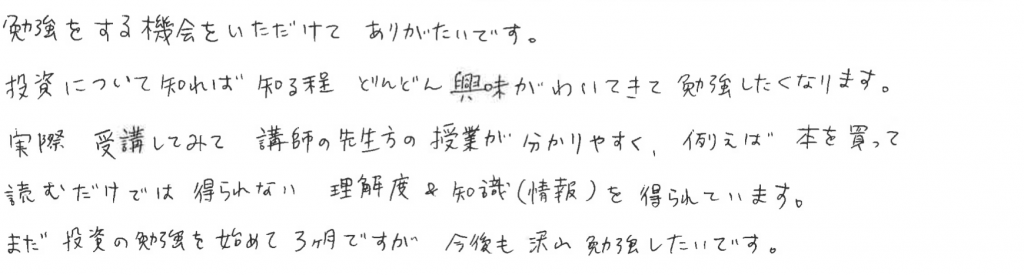 勉強をする機会をいただけて ありがたいです。
投資について知れば 知る程 どんどん 興味がわいてきて 勉強したくなります。
実際 受講してみて 講師の先生方の 授業が 分かりやすく、例えば 本を買って
読むだけでは 得られない 理解度 & 知識(情報)を 得られています。
まだ 投資の勉強を始めて 3ヶ月ですが 今後も 沢山 勉強したいです。